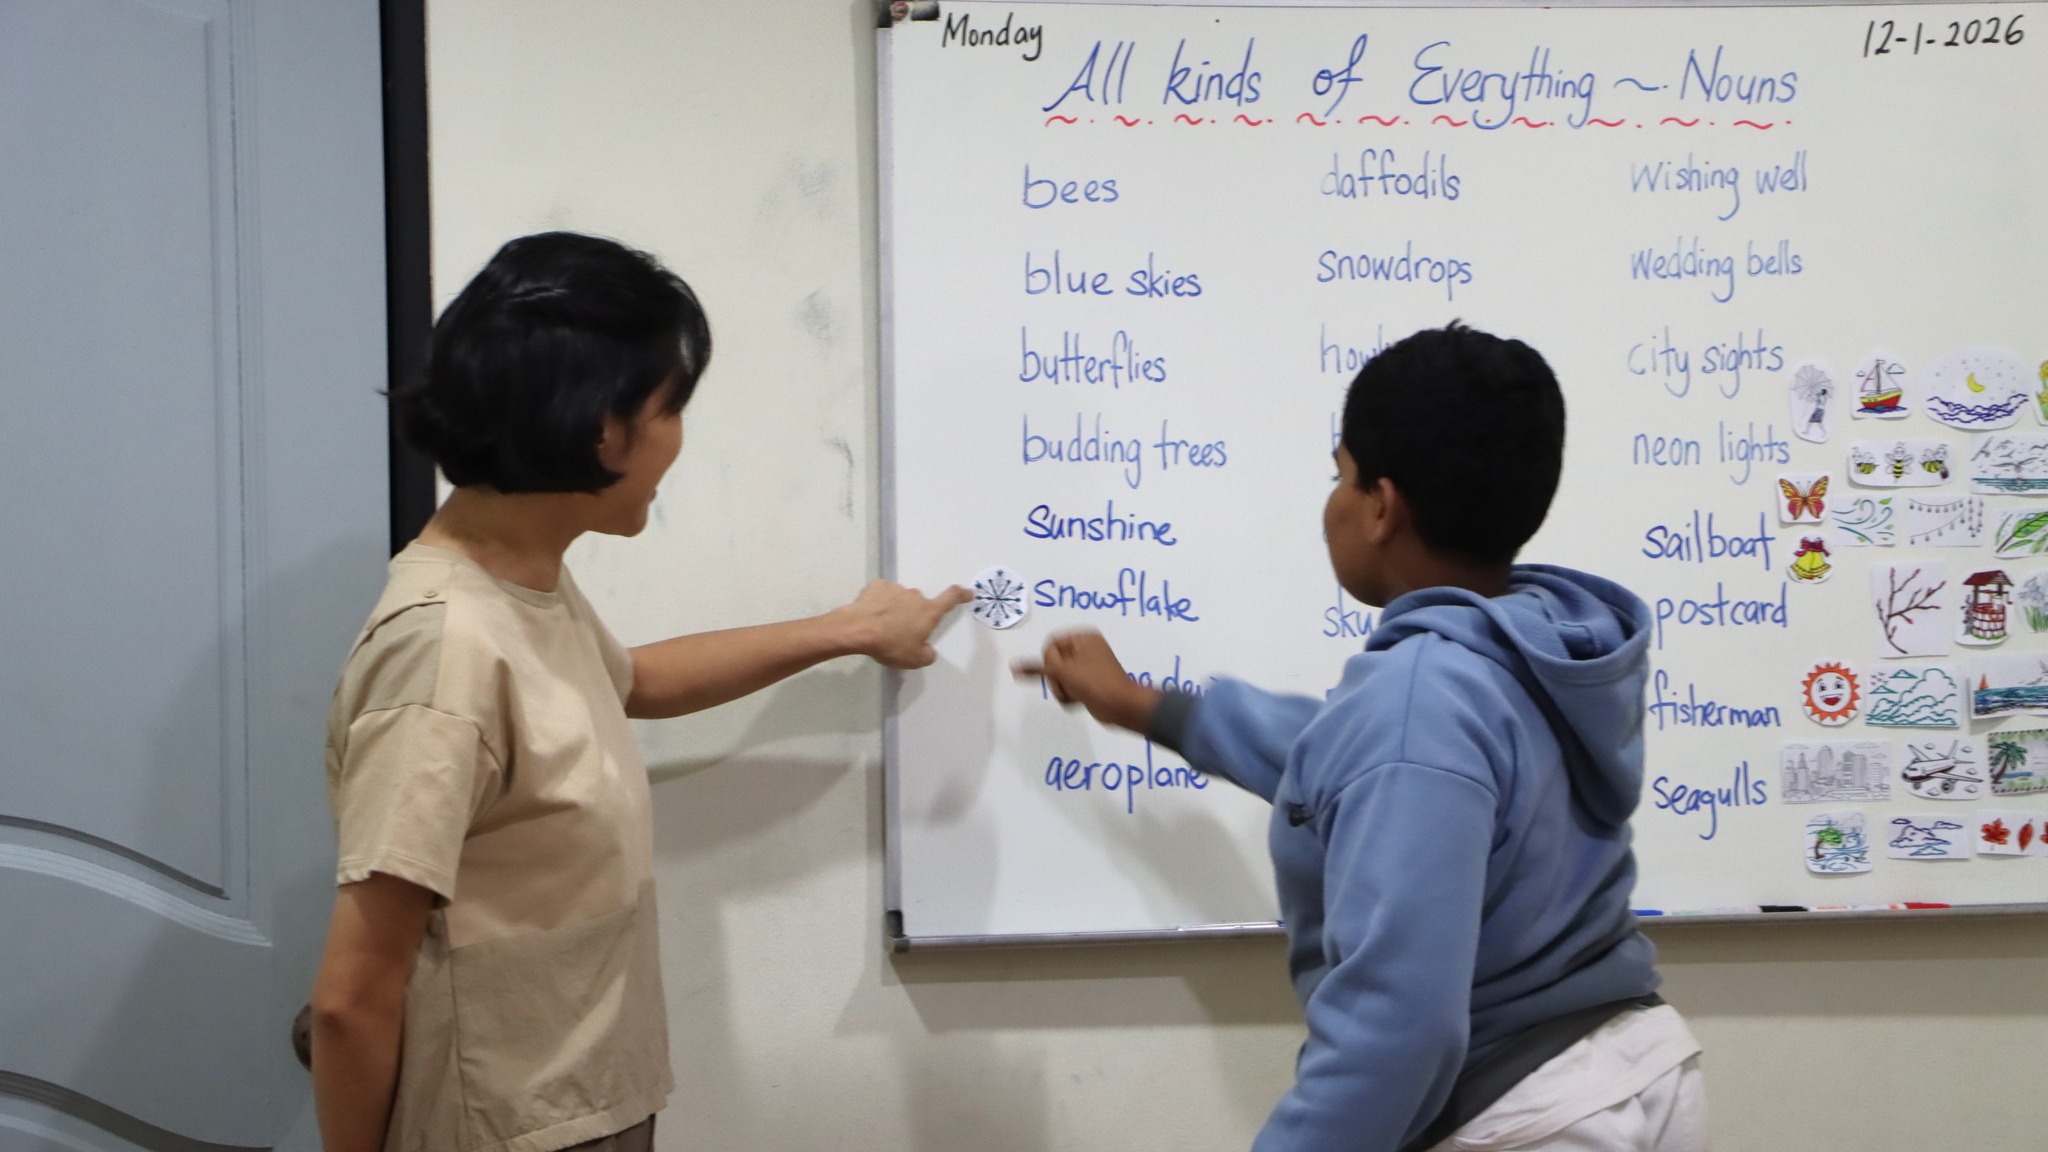 Monday
12-1-2026
All kinds of Everything ~ Nouns
bees
blue skies
butterflies
budding trees
sunshine
snowflake
aeroplane
daffodils
snowdrops
Wishing well
Wedding bells
city sights
neon lights
sailboat
postcard
fisherman
seagulls